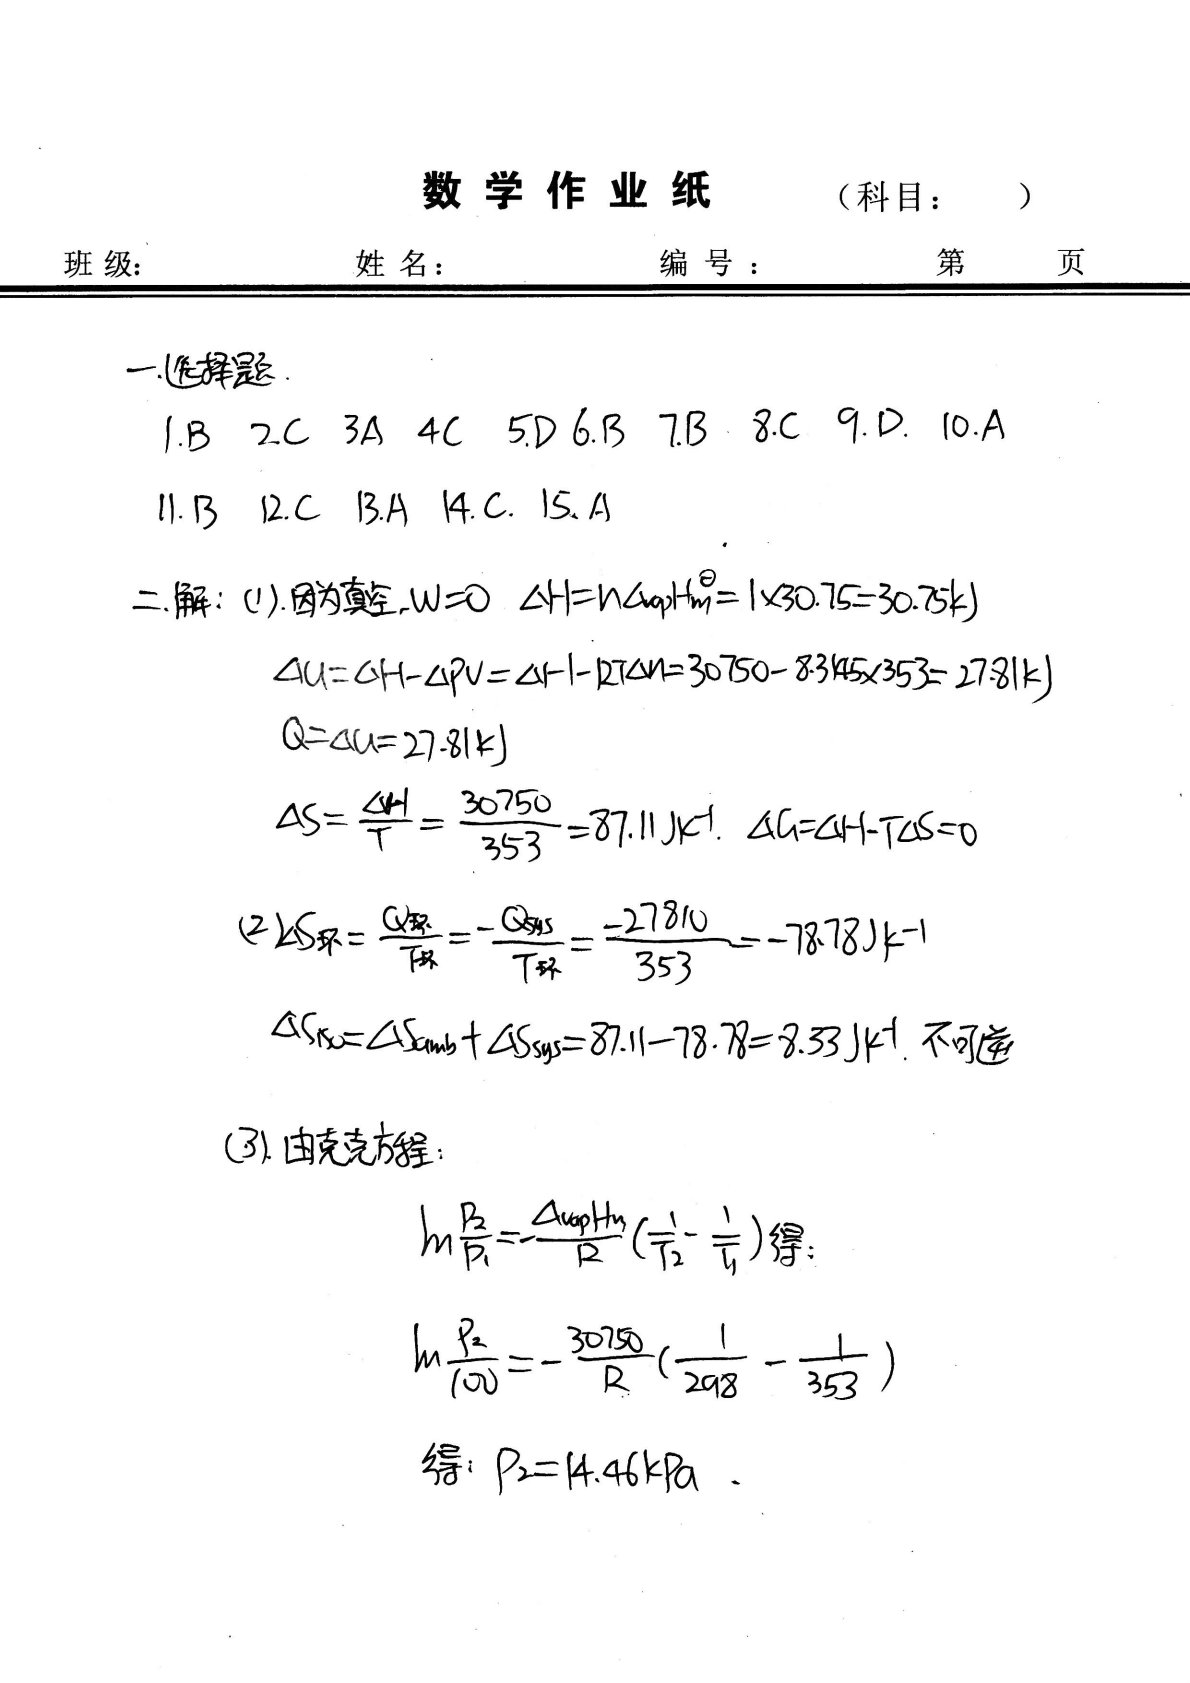 数学作业纸 （科目： ）
班级： 姓名： 编号： 第 页
一.选择题.
1.B 2.C 3A 4C 5.D 6.B 7.B 8.C 9.D. 10.A
11.B 12.C 13.A 14.C. 15.A
二.解：(1).因为真空,W=0 ΔH=nΔvapHm^⊖=1×30.75=30.75kJ
ΔU=ΔH-ΔPV=ΔH-RTΔn=30750-8.3145×353=27.81kJ
Q=ΔU=27.81kJ
ΔS=ΔH/T=30750/353=87.11JK⁻¹. ΔG=ΔH-TΔS=0
(2)ΔS环=Q环/T环=-Qsys/T环=-27810/353=-78.78JK⁻¹
ΔSiso=ΔSamb+ΔSsys=87.11-78.78=8.33JK⁻¹. 不可逆
(3).由克克方程：
ln P₂/P₁=-ΔvapHm/R(1/T₂-1/T₁)得：
ln P₂/100=-30750/R(1/298-1/353)
得：P₂=14.46kPa.